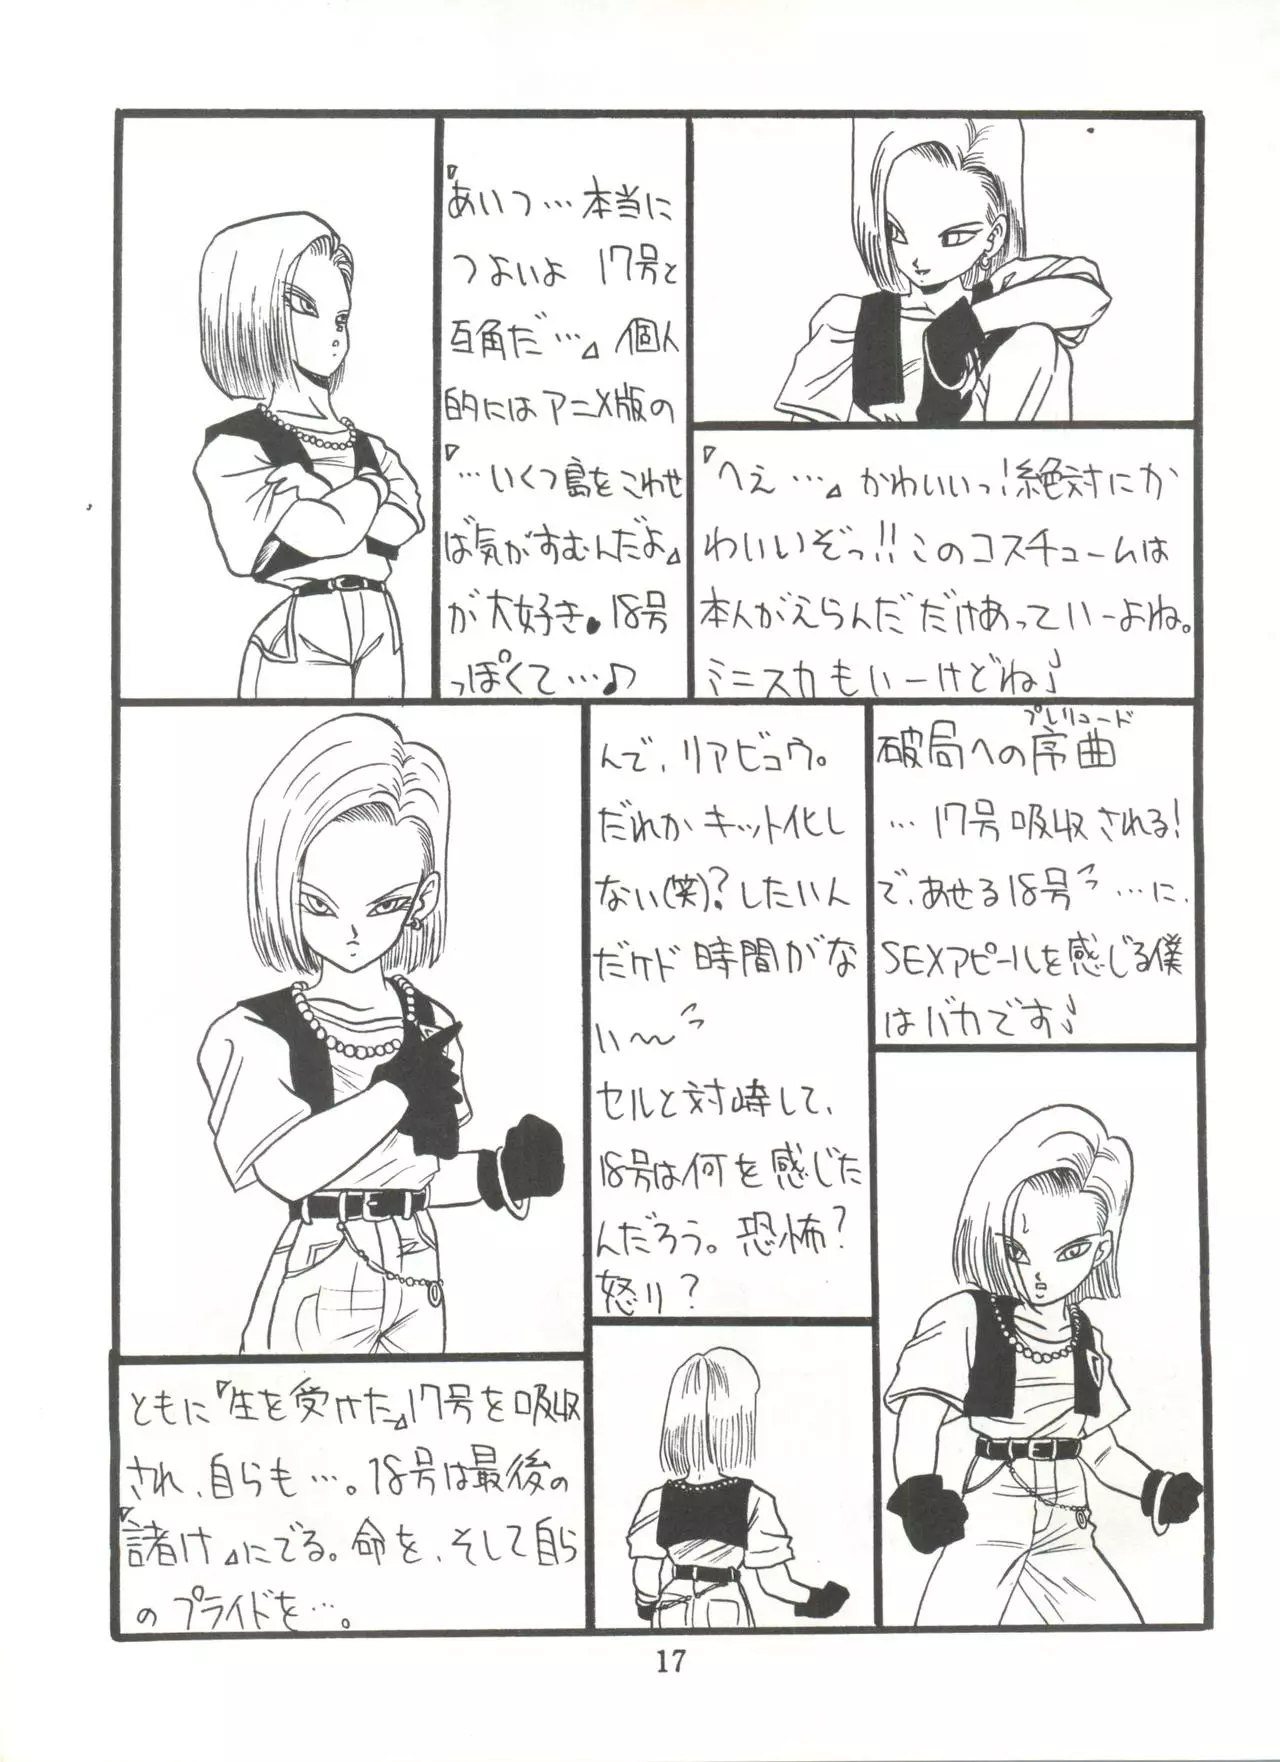 『へえ…』かわいいっ！絶対にか
わいいぞっ！！このコスチュームは
本人がえらんだだけあっていーよね。
ミニスカもいーけどね♪
『あいつ…本当に
つよいよ 17号と
互角だ…』個人
的にはアニメ版の
『…いくつ島をこわせ
ば気がすむんだよ』
が大好き。18号
っぽくて…♪
破局への序曲
プレリュード
…17号吸収される！
で、あせる18号…に、
SEXアピールを感じる僕
はバカです♪
んで、リアビュウ。
だれかキット化し
ない(笑)？したいん
だケド時間がな
い〜
セルと対峙して、
18号は何を感じた
んだろう。恐怖？
怒り？
ともに『生を受けた』17号を吸収
され、自らも…。18号は最後の
『諸け』にでる。命を、そして自ら
のプライドを…。
17